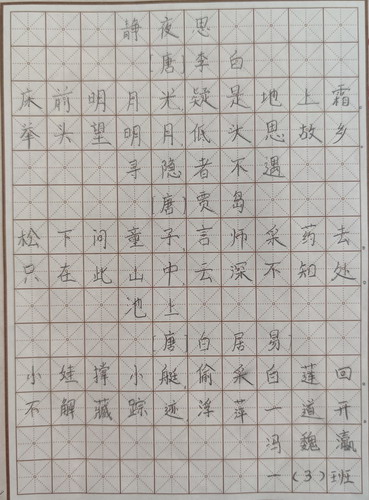 静夜思
[唐]李白
床前明月光,疑是地上霜。
举头望明月,低头思故乡。
寻隐者不遇
[唐]贾岛
松下问童子,言师采药去。
只在此山中,云深不知处。
池上
[唐]白居易
小娃撑小艇,偷采白莲回。
不解藏踪迹,浮萍一道开。
冯魏瀛
一(3)班